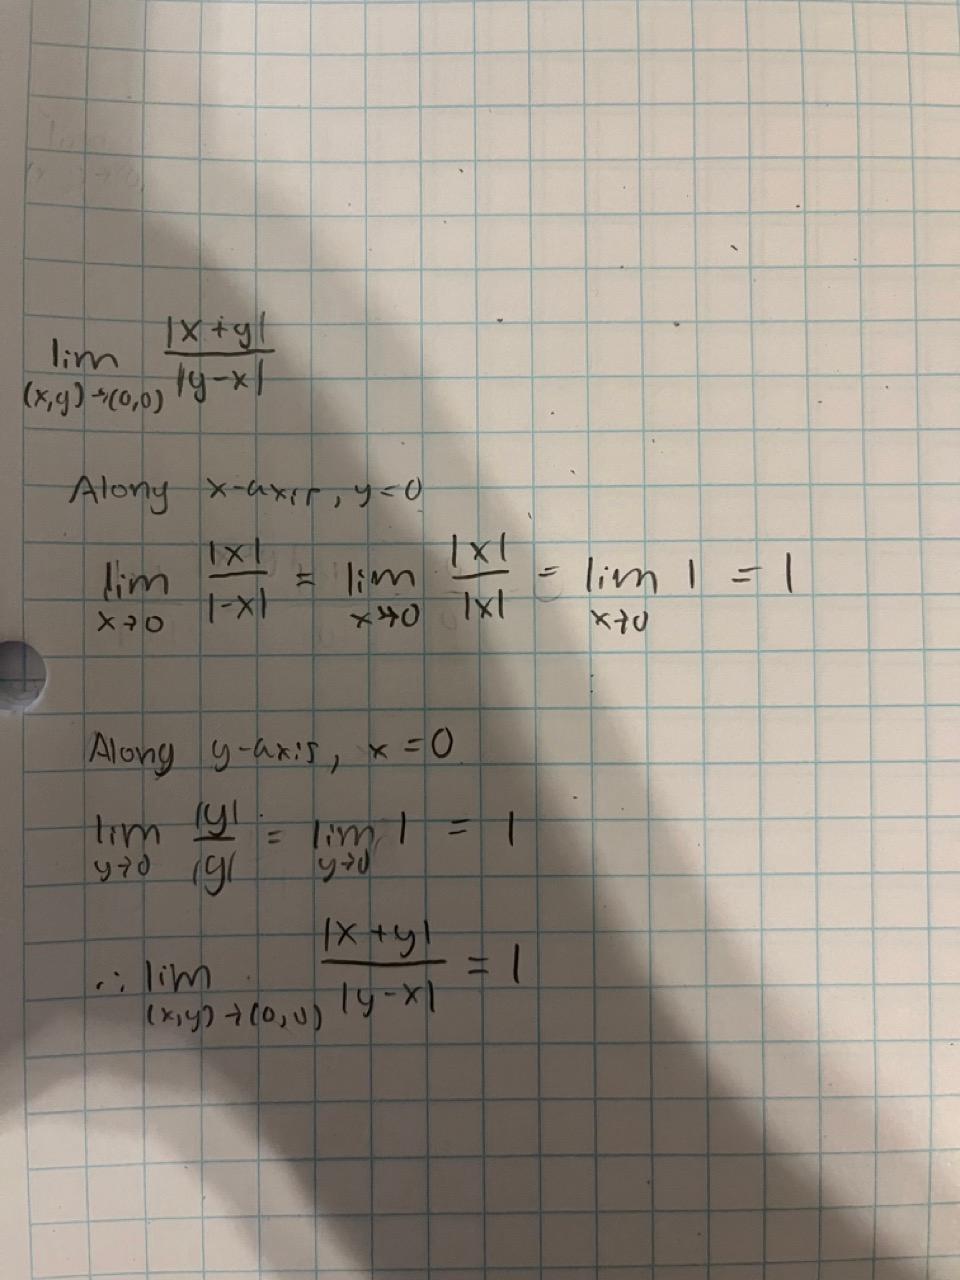 lim_{(x,y)→(0,0)} |x+y| / |y-x|
Along x-axis, y=0
lim_{x→0} |x| / |-x| = lim_{x→0} |x| / |x| = lim_{x→0} 1 = 1
Along y-axis, x=0
lim_{y→0} |y| / |y| = lim_{y→0} 1 = 1
∴ lim_{(x,y)→(0,0)} |x+y| / |y-x| = 1